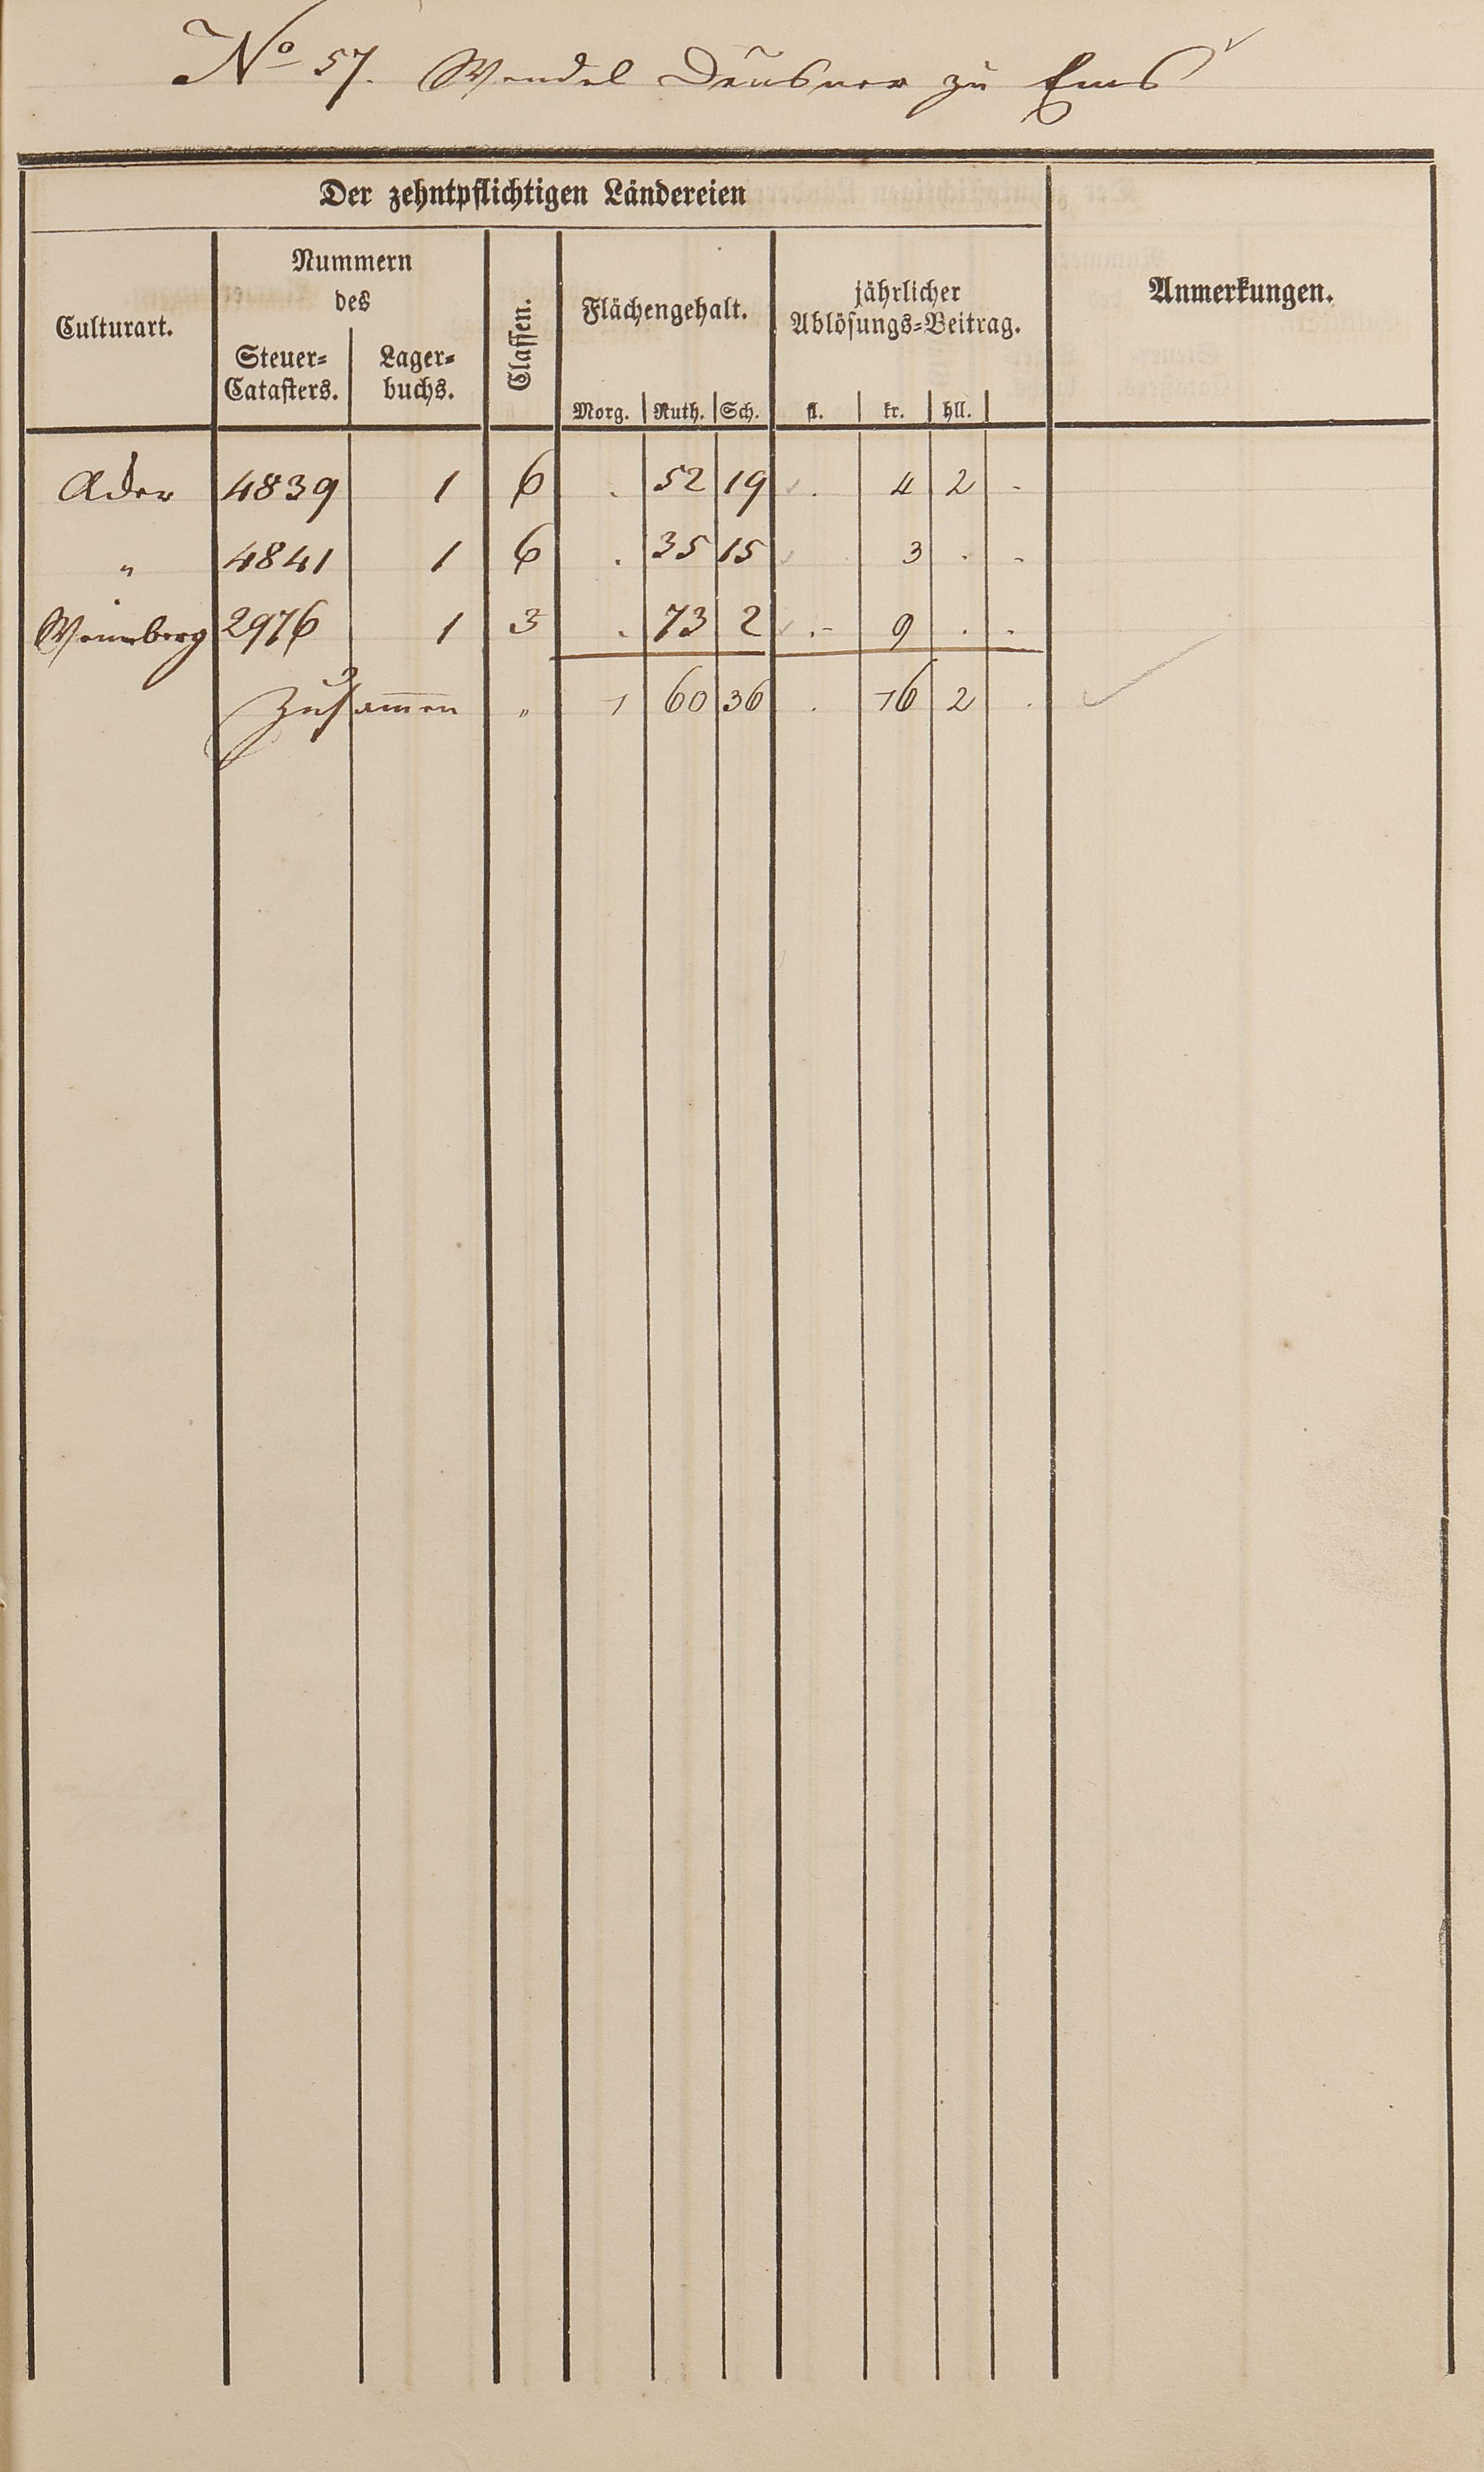 No 57. Wendel Deusner zu Ems
Der zehntpflichtigen Ländereien
Culturart. Nummern des Steuer-Catasters. Lager-buchs. Classen. Flächengehalt. jährlicher Ablösungs-Beitrag. Anmerkungen.
Morg. Ruth. Sch. fl. kr. hll.
Acker 4839 1 6 . 52 19 . 4 2 -
" 4841 1 6 . 35 15 . 3 . -
Weinberg 2976 1 3 . 73 2 .- 9 . .
Zusam̅en " 1 60 36 . 16 2 .